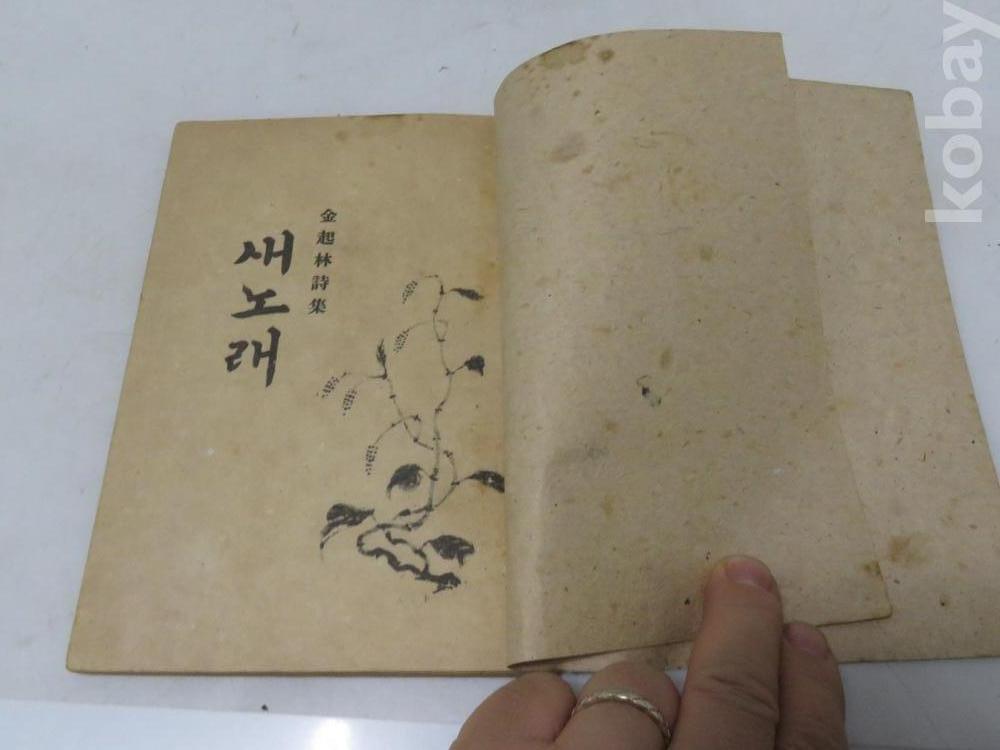 金起林詩集
새노래
kobay